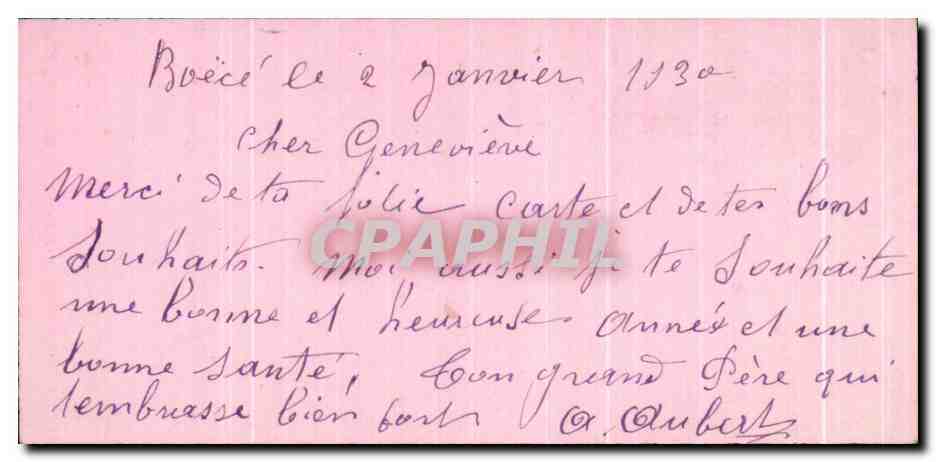 Boëcé le 2 Janvier 1930
cher Geneviève
Merci de ta jolie carte et de tes bons
souhaits. Moi aussi je te souhaite
une bonne et heureuse année et une
bonne santé, ton grand Père qui
t'embrasse bien fort A. Aubert
CPAPHIL